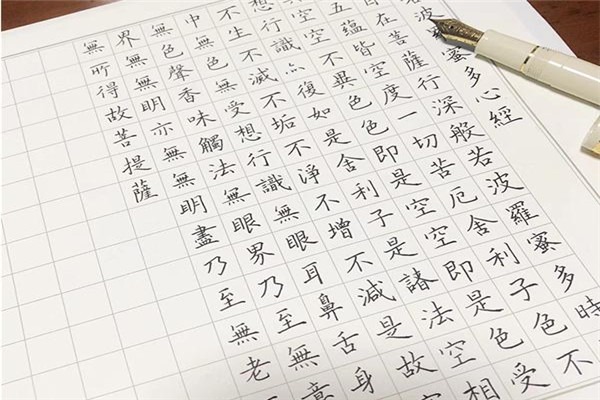 波蜜多心經
在菩薩行深般若波羅蜜多時
五蘊皆空度一切苦厄舍利子色不
空不異色色即是空空即是色受
想行識亦復如是舍利子是諸法空相
不生不滅不垢不淨不增不減是故空
中無色無受想行識無眼耳鼻舌身
無色聲香味觸法無眼界乃至無意
界無無明亦無無明盡乃至無老
無所得故菩提薩